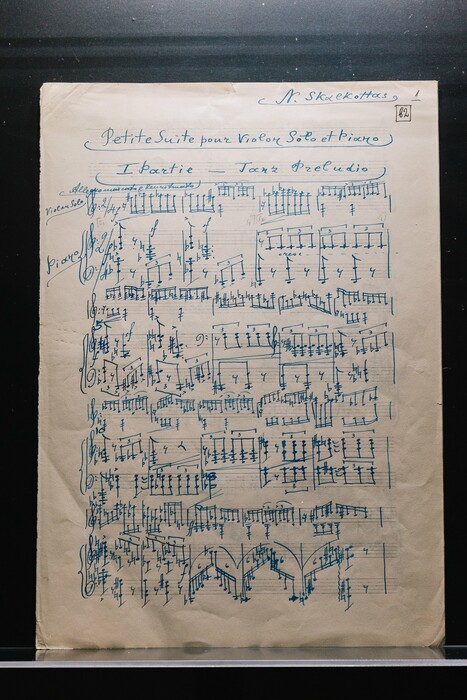 ( N. Skalkottas ) 1
62
( Petite Suite pour Violon Solo et Piano )
I Partie — Tanz Preludio )
Violon Solo
Piano